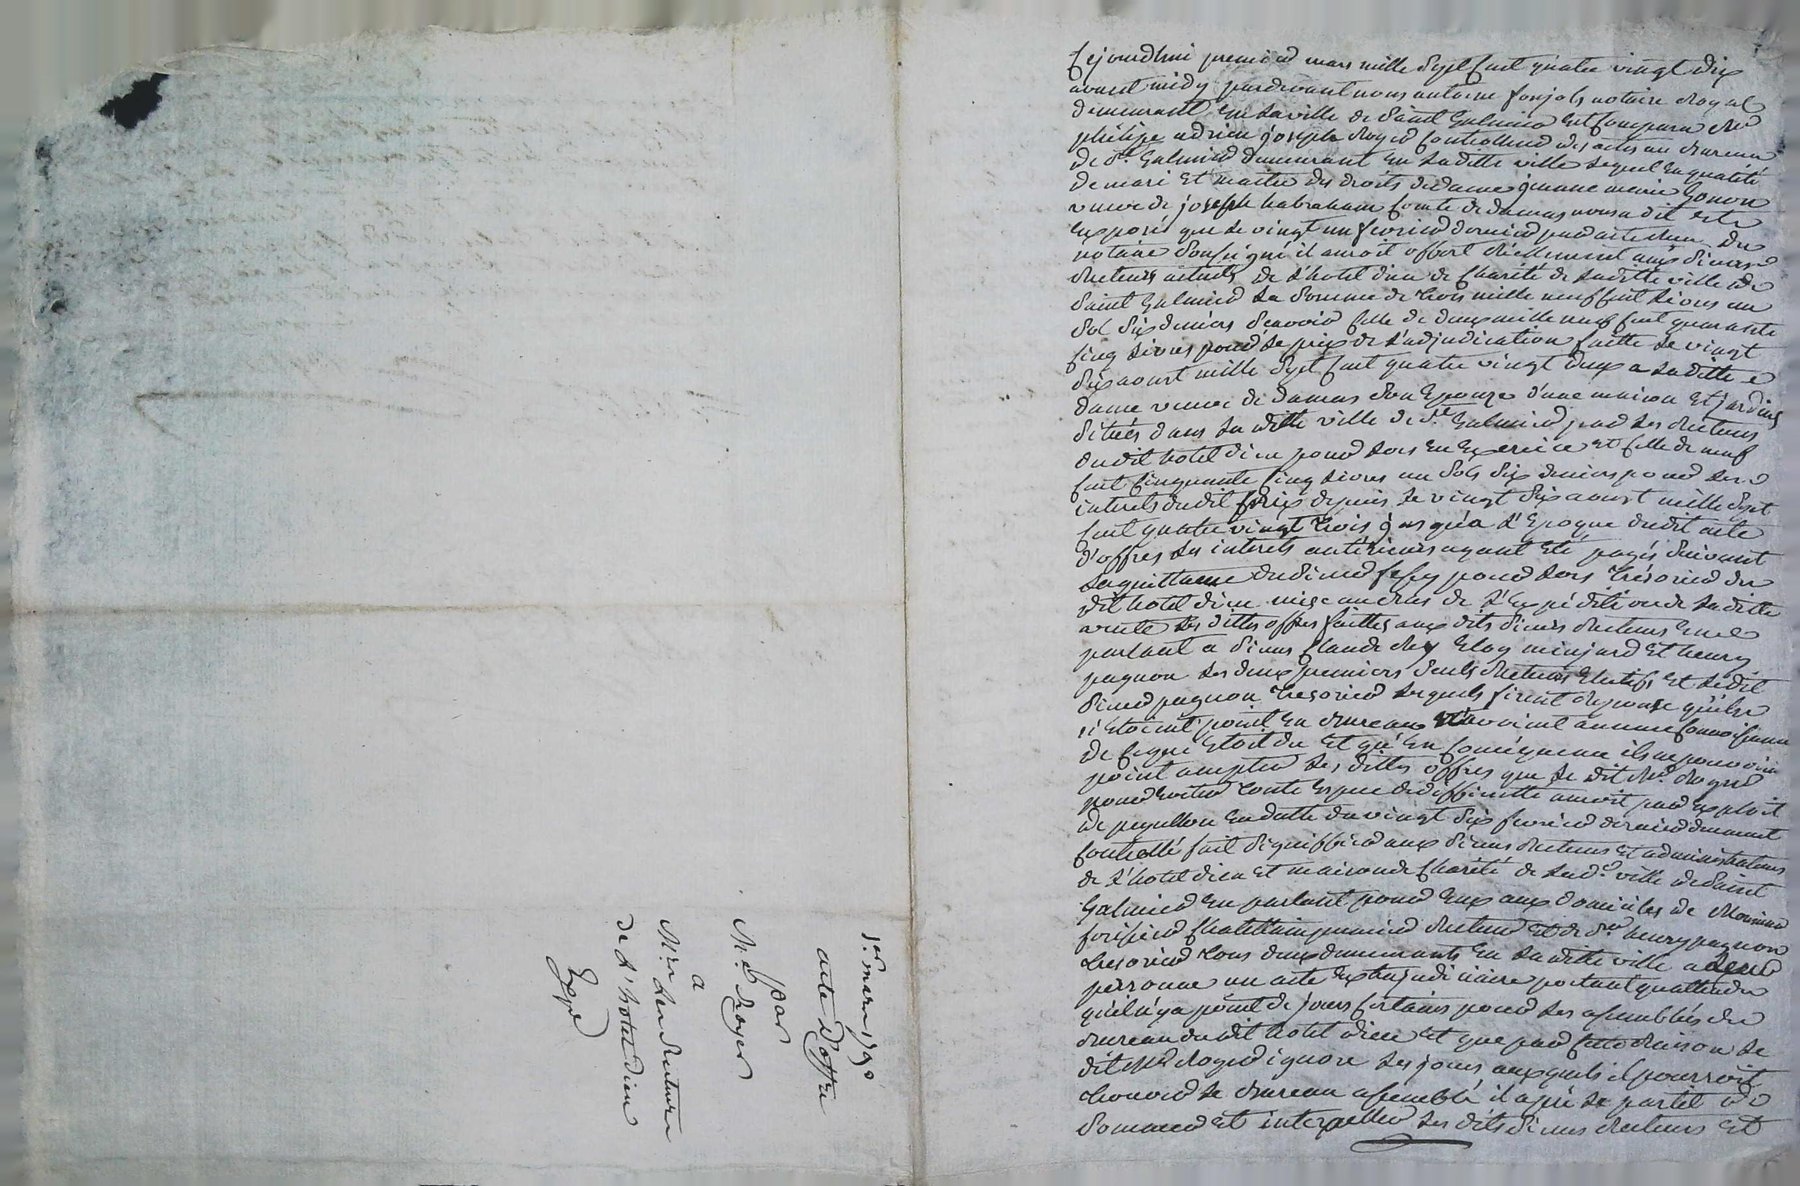 1er mars 1790
acte d'offre
par
Mr. Royer
a
Mrs. les recteurs
de l'hotel dieu
Expé
Cejourdhui premier mars mille sept cent quatre vingt dix
avant midy pardevant nous antoine fonjols notaire Royal
demeurant en la ville de Saint Galmier est comparu Mr
philipe adrien joseph Royer controlleur des actes au Bureau
de St. Galmier demeurant en la ditte ville lequel en qualité
de mari et maitre des droits de dame jeanne marie Gonon
veuve de joseph habraham comte de damas nous a dit et
exposé que le vingt un fevrier dernier par acte Reçu du
notaire soussigné il auroit offert Réellement aux sieurs
Recteurs actuels de l'hotel dieu de Charité de la ditte ville de
Saint Galmier la somme de trois mille neuf cent livres un
sol six deniers scavoir celle de deux mille neuf cent quarante
cinq livres pour le prix de l'adjudication faitte le vingt
six aoust mille sept cent quatre vingt deux a la ditte
dame veuve de damas son Epouze d'une maison et jardins
situés dans la ditte ville de St. Galmier par les Recteurs
du dit hotel dieu pour lors en Exercice et celle de neuf
cent cinquante cinq livres un sols six deniers pour les
interets dudit prix depuis le vingt six aoust mille sept
cent quatre vingt trois jusqu'a l'Epoque dudit acte
d'offres les interets antérieurs ayant été payés suivant
la quittance du sieur pour lors trésorier du
dit hotel dieu mise au bas de l'Expédition de la ditte
vente les dittes offres faittes aux dits sieurs Recteurs en
parlant a sieurs Claude Rey Eloy minjard et henry
pagnon les deux premiers seuls Recteurs Electifs et ledit
sieur pagnon tresorier lesquels firent Reponse qu'ils
n'etoient point en Bureau n'avoient aucune connoissance
de ce qui etoit du et qu'en conséquence ils ne pouvoient
point accepter les dittes offres que le dit Mr. Royer
pour eviter toute espece de difficulté auroit par exploit
de peyullon en datte du vingt six fevrier dernier duement
controllé fait signiffier aux sieurs Recteurs et administrateurs
de l'hotel dieu et maison de Charité de lad. ville de Saint
Galmier en parlant pour eux aux domiciles de Monsieur
Chatelain premier Recteur et de Sr. henry pagnon
tresorier tous deux demeurants en la ditte ville a leur
personne un acte extrajudiciaire portant qu'attendu
qu'il n'y a point de jours certains pour les assemblées du
Bureau du dit hotel dieu et que par cette Raison le
dit Mr Royer ignore les jours auxquels il pourroit
trouver le Bureau assemblé il a pris le parti de
sommer et interpeller les dits sieurs Recteurs et